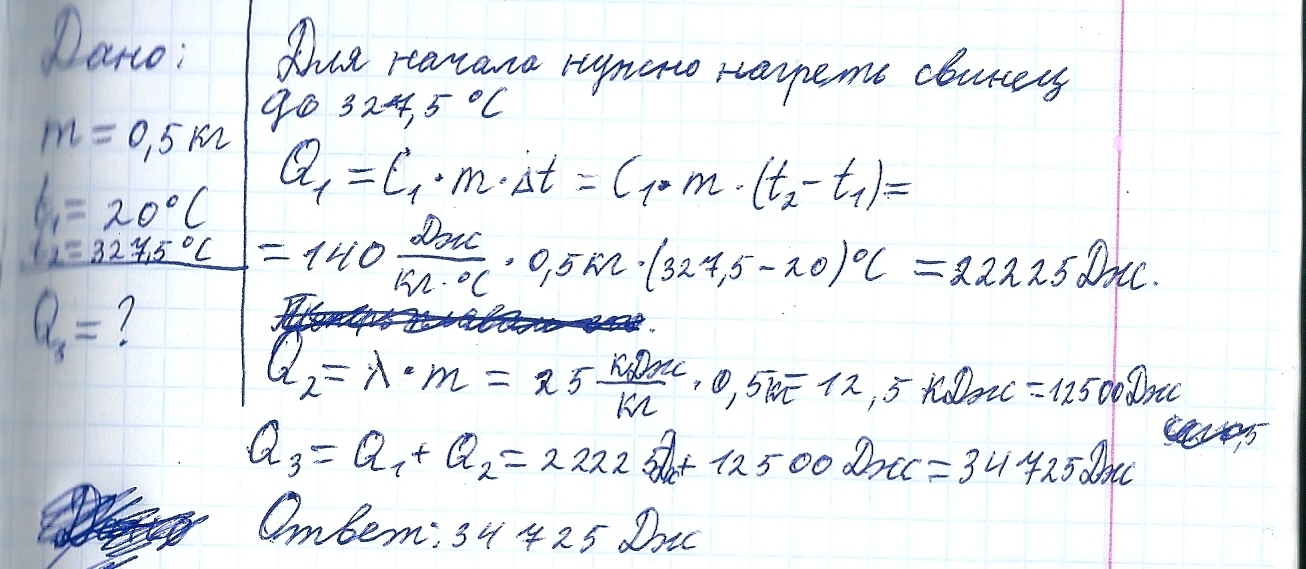 Дано:
m = 0,5 кг
t₁ = 20°C
t₂ = 327,5°C
Q₃ = ?
Для начала нужно нагреть свинец
до 327,5 °C
Q₁ = C₁ · m · Δt = C₁ · m · (t₂ - t₁) =
= 140 Дж/кг·°C · 0,5 кг · (327,5 - 20)°C = 22225 Дж.
Q₂ = λ · m = 25 кДж/кг · 0,5 кг = 12,5 кДж = 12500 Дж
Q₃ = Q₁ + Q₂ = 22225 Дж + 12500 Дж = 34725 Дж
Ответ: 34725 Дж